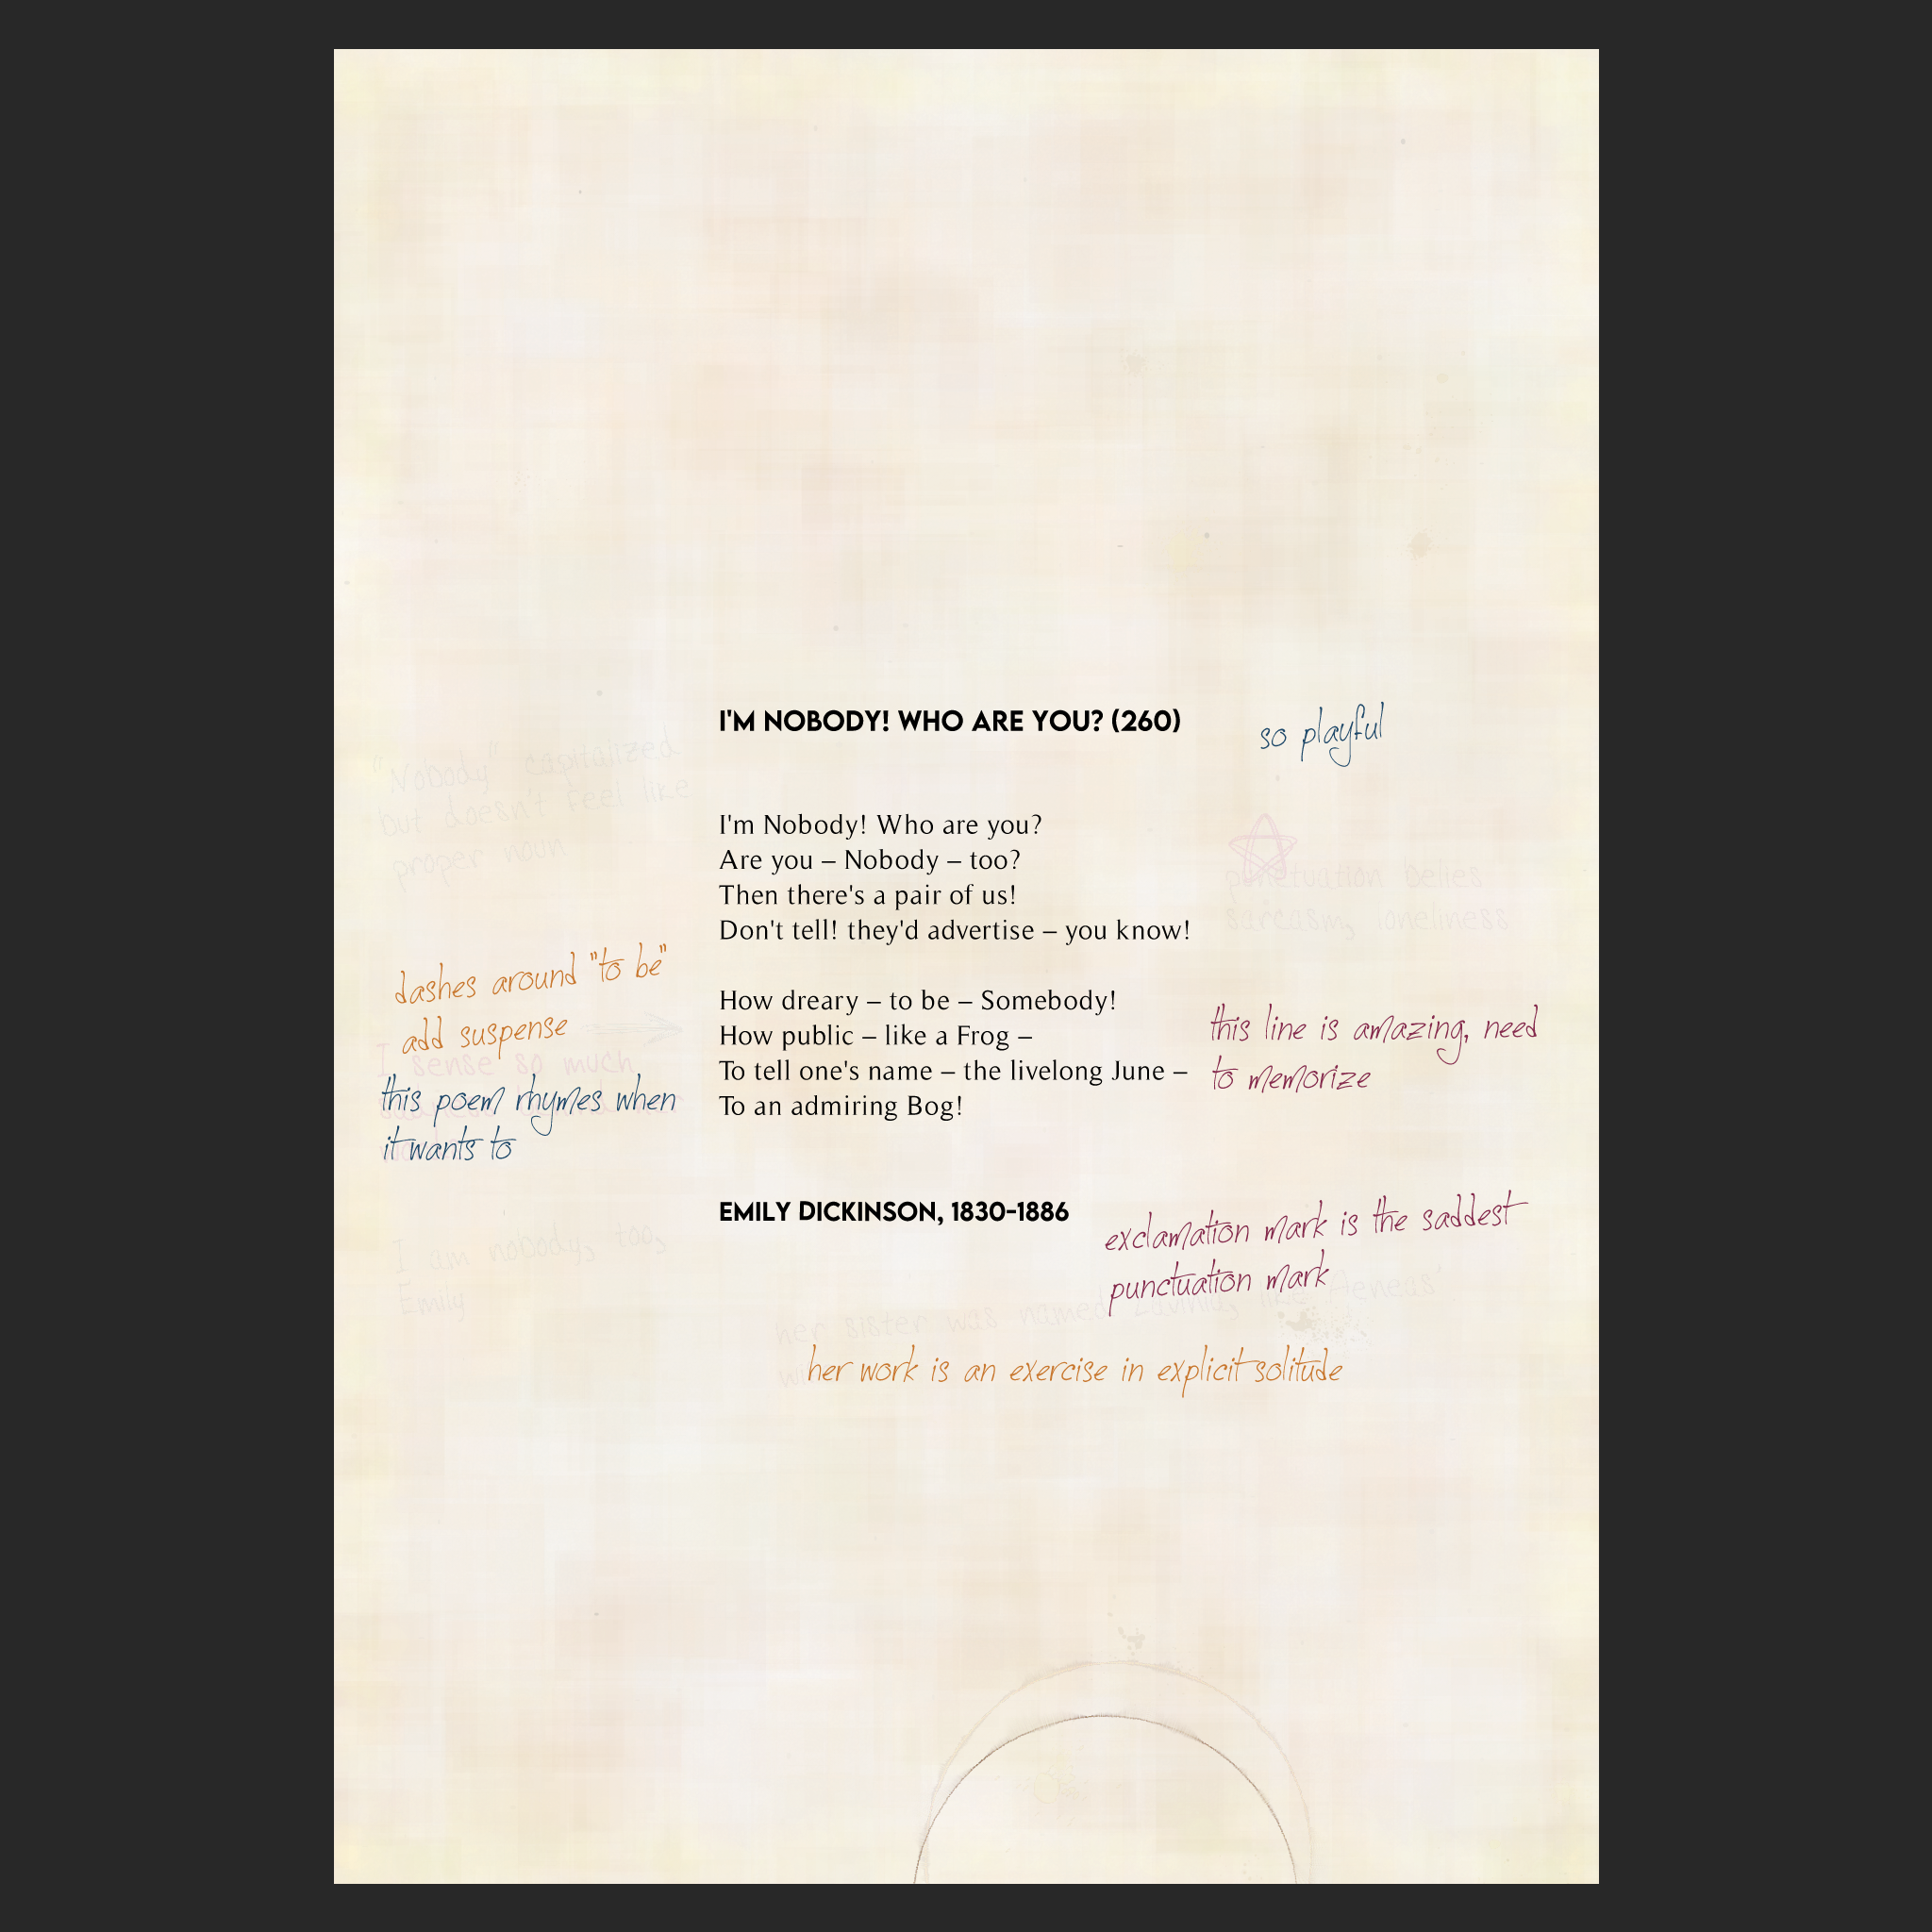 I'M NOBODY! WHO ARE YOU? (260)
so playful
"Nobody" capitalized
but doesn't feel like
proper noun
I'm Nobody! Who are you?
Are you – Nobody – too?
Then there's a pair of us!
Don't tell! they'd advertise – you know!
punctuation belies
sarcasm, loneliness
dashes around "to be"
add suspense
I sense so much
this poem rhymes when
it wants to
How dreary – to be – Somebody!
How public – like a Frog –
To tell one's name – the livelong June –
To an admiring Bog!
this line is amazing, need
to memorize
I am nobody, too,
Emily
EMILY DICKINSON, 1830-1886
exclamation mark is the saddest
punctuation mark
her sister was named Lavinia, like Aeneas'
her work is an exercise in explicit solitude